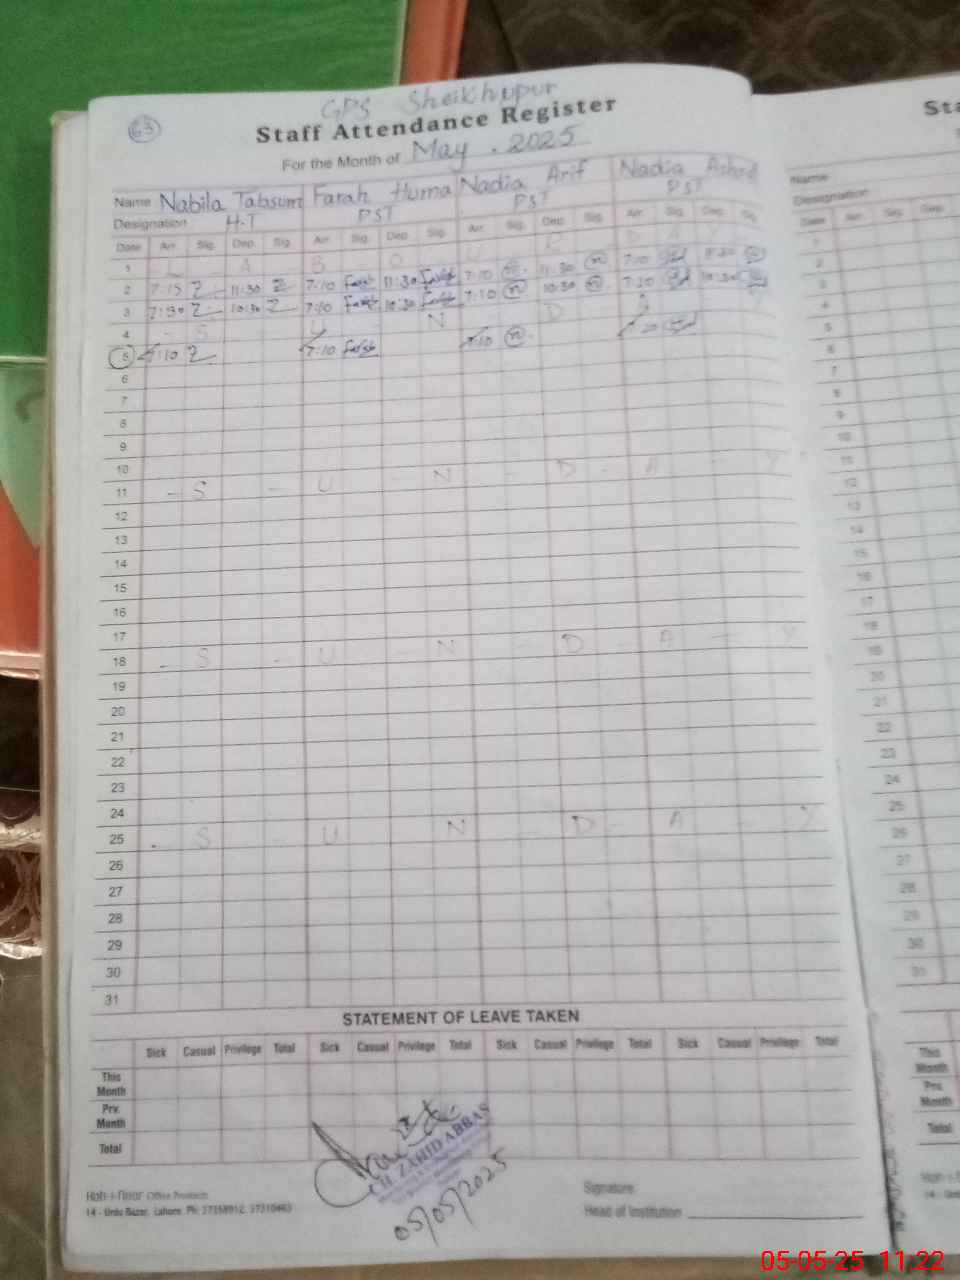 63
GPS Sheikhupur
Staff Attendance Register
For the Month of May . 2025
Name Nabila Tabsum Farah Huma Nadia Arif Nadia Ashraf
Designation H.T PST PST PST
Date Arr. Sig. Dep. Sig. Arr. Sig. Dep. Sig. Arr. Sig. Dep. Sig. Arr. Sig. Dep. Sig.
1 - L - A - B - O - U - R - D A Y
2 7:15 11:30 7:10 Farah 11:30 Farah 7:10 n 11:30 n 7:10 11:30
3 7:30 10:30 7:10 Farah 10:30 Farah 7:10 n 10:30 n 7:20 10:30
4 - S U N D A Y
5 7:10 7:10 Farah 7:10 n 7:20
6
7
8
9
10
11 - S - U - N - D - A - Y
12
13
14
15
16
17
18 - S - U - N - D - A - Y
19
20
21
22
23
24
25 - S - U - N - D - A - Y
26
27
28
29
30
31
STATEMENT OF LEAVE TAKEN
Sick Casual Privilege Total Sick Casual Privilege Total Sick Casual Privilege Total Sick Casual Privilege Total
This Month
Prv. Month
Total
CH. ZAHID ABBAS
05/05/2025
Koh-i-Noor Office Products
14 - Urdu Bazar, Lahore. Ph: 37358912, 37310463
Signature
Head of Institution
Sta
Name
Designation
Date Arr. Sig. Dep.
1
2
3
4
5
6
7
8
9
10
11
12
13
14
15
16
17
18
19
20
21
22
23
24
25
26
27
28
29
30
31
This Month
Prv. Month
Total
05-05-25 11:22